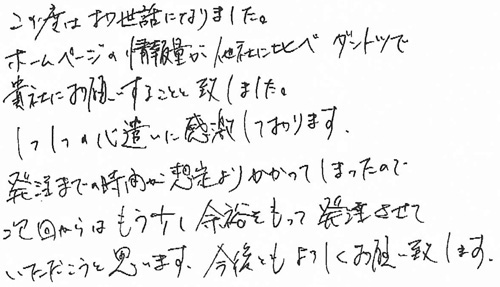 この度はお世話になりました。
ホームページの情報量が他社に比べダントツで
貴社にお願いすることと致しました。
1つ1つの心遣いに感激しております。
発注までの時間が想定よりかかってしまったので
次回からはもう少し余裕をもって発注させて
いただこうと思います。今後ともよろしくお願い致します。